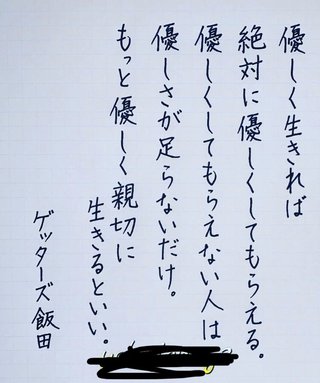 優しく生きれば
絶対に優しくしてもらえる。
優しくしてもらえない人は
優しさが足らないだけ。
もっと優しく親切に
生きるといい。
ゲッターズ飯田